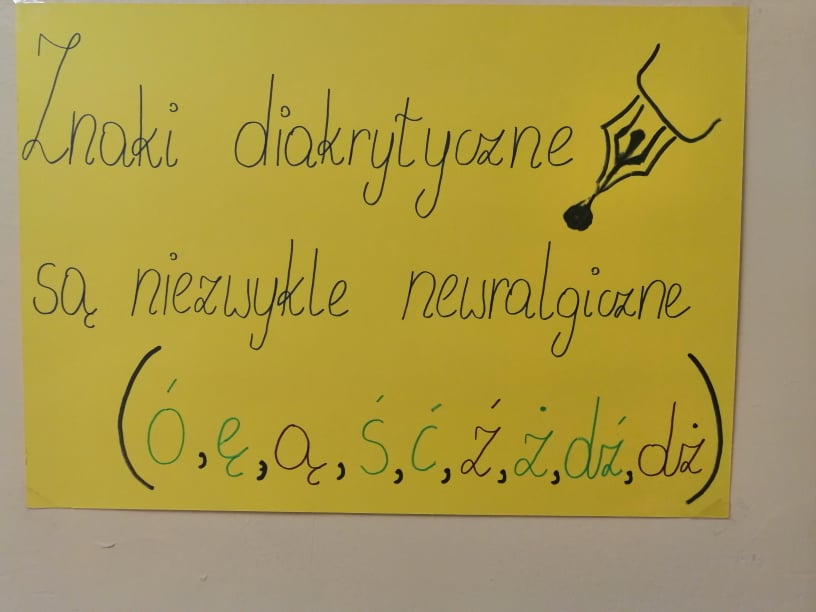 Znaki diakrytyczne
są niezwykle newralgiczne
(ó, ę, ą, ś, ć, ź, ż, dź, dż)